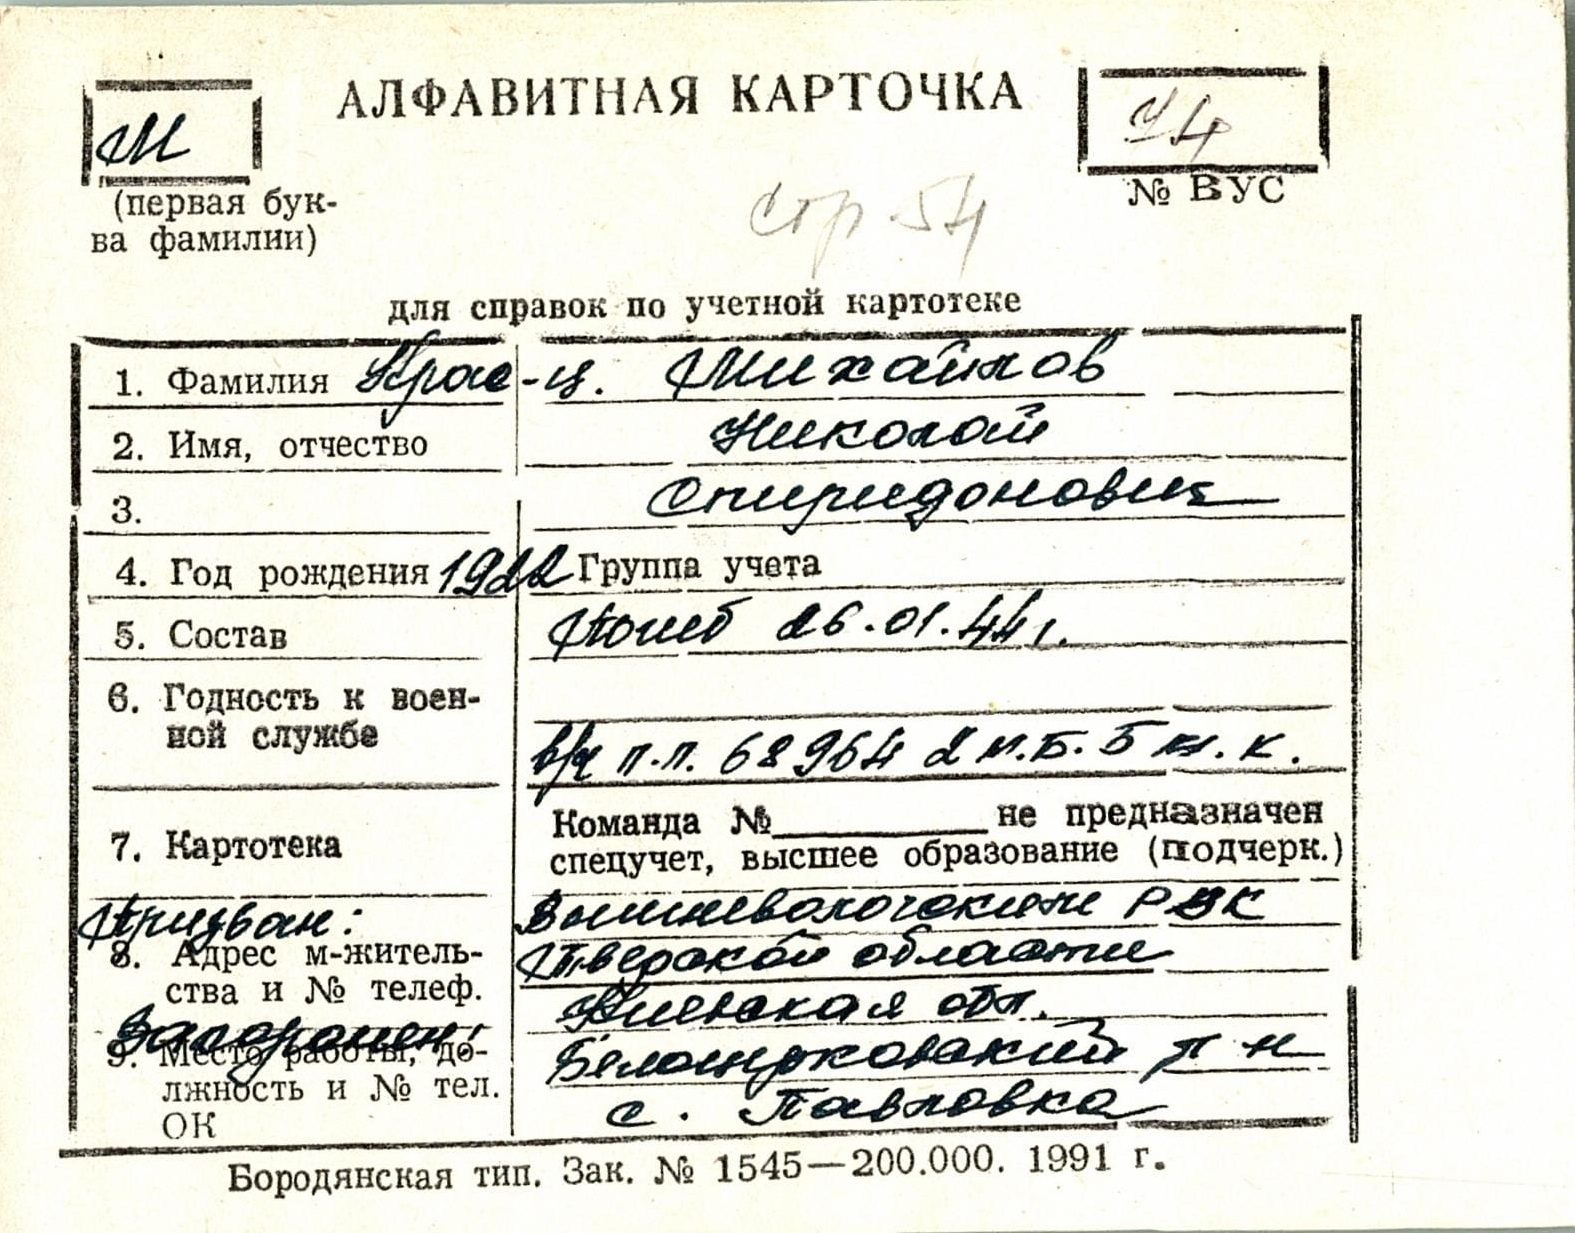 АЛФАВИТНАЯ КАРТОЧКА
М
44
(первая бук-
ва фамилии)
№ ВУС
стр 54
для справок по учетной картотеке
1. Фамилия Крас-ц. Михайлов
2. Имя, отчество Николай
3. Спиридонович
4. Год рождения 1922 Группа учета
5. Состав Погиб 26.01.44 г.
6. Годность к воен-
ной службе
в/ч п.п. 68964 2 м.б. 5 м.к.
7. Картотека
Команда № не предназначен
спецучет, высшее образование (подчерк.)
Призван: Вышневолочским РВК
8. Адрес м-житель-
ства и № телеф.
Тверской области
Захоронен: Киевская обл.
9. Место работы, до-
лжность и № тел.
ОК
Белоцерковский р-н
с. Павловка
Бородянская тип. Зак. № 1545—200.000. 1991 г.